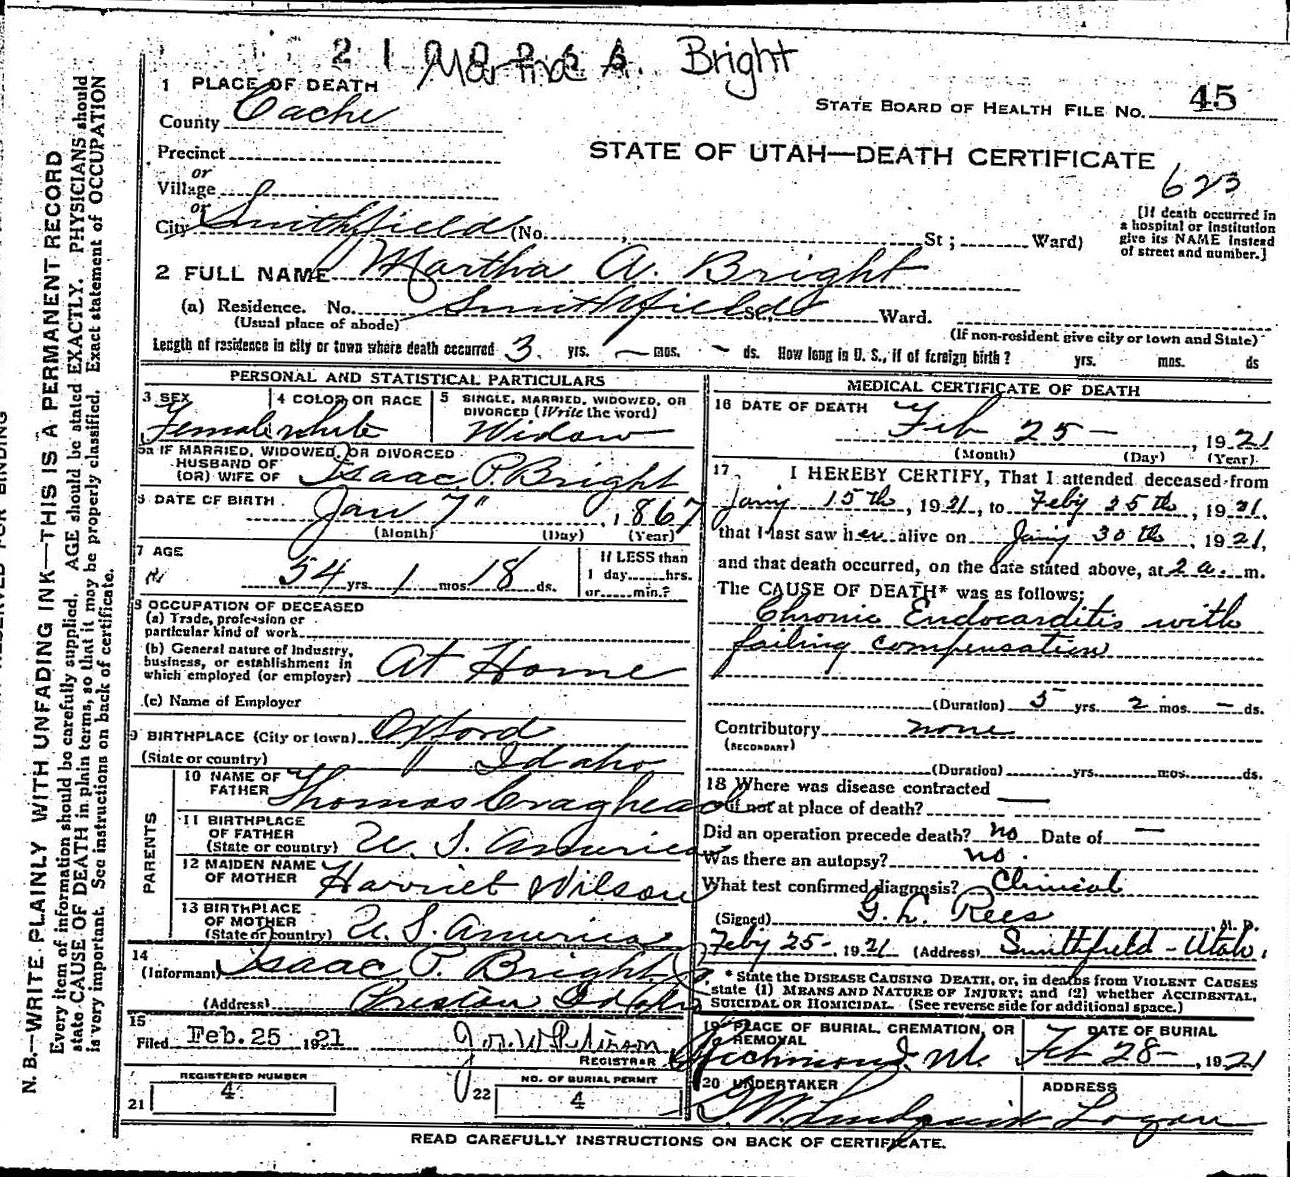 Martha A. Bright
1 PLACE OF DEATH
STATE BOARD OF HEALTH FILE NO. 45
County Cache
Precinct
STATE OF UTAH—DEATH CERTIFICATE
or
Village
623
or
City Smithfield (No. , St ; Ward)
[If death occurred in
a hospital or institution
give its NAME instead
of street and number.]
2 FULL NAME Martha A. Bright
(a) Residence. No. Smithfield St., Ward.
(Usual place of abode)
(If non-resident give city or town and State)
Length of residence in city or town where death occurred 3 yrs. — mos. - ds. How long in U. S., if of foreign birth? yrs. mos. ds
PERSONAL AND STATISTICAL PARTICULARS
3 SEX
Female
4 COLOR OR RACE
white
5 SINGLE, MARRIED, WIDOWED, OR
DIVORCED (Write the word)
Widow
5a IF MARRIED, WIDOWED, OR DIVORCED
HUSBAND OF
(OR) WIFE OF Isaac P. Bright
6 DATE OF BIRTH Jan 7" , 1867
(Month) (Day) (Year)
7 AGE
54 yrs. 1 mos. 18 ds.
If LESS than
1 day......hrs.
or......min.?
8 OCCUPATION OF DECEASED
(a) Trade, profession or
particular kind of work
(b) General nature of Industry,
business, or establishment in
which employed (or employer) At Home
(c) Name of Employer
9 BIRTHPLACE (City or town) Oxford
(State or country) Idaho
PARENTS
10 NAME OF
FATHER Thomas Craghead
11 BIRTHPLACE
OF FATHER
(State or country) U. S. America
12 MAIDEN NAME
OF MOTHER Harriet Wilson
13 BIRTHPLACE
OF MOTHER
(State or country) U. S. America
14
(Informant) Isaac P. Bright Jr.
(Address) Preston Idaho
15
Filed Feb. 25 1921
REGISTRAR
REGISTERED NUMBER
21 4
NO. OF BURIAL PERMIT
22 4
MEDICAL CERTIFICATE OF DEATH
16 DATE OF DEATH Feb 25 — , 1921
(Month) (Day) (Year)
17 I HEREBY CERTIFY, That I attended deceased from
Jany 15th , 1921, to Feby 25th , 1921,
that I last saw her alive on Jany 30th , 1921,
and that death occurred, on the date stated above, at 2 a. m.
The CAUSE OF DEATH* was as follows:
Chronic Endocarditis with
failing compensation
(Duration) 5 yrs. 2 mos. — ds.
Contributory none
(SECONDARY)
(Duration) yrs. mos. ds.
18 Where was disease contracted
if not at place of death?
Did an operation precede death? no Date of —
Was there an autopsy? no.
What test confirmed diagnosis? Clinical
(Signed) G. L. Rees M. D.
Feby 25-, 1921 (Address) Smithfield - Utah.
* State the DISEASE CAUSING DEATH, or, in deaths from VIOLENT CAUSES
state (1) MEANS AND NATURE OF INJURY; and (2) whether ACCIDENTAL,
SUICIDAL OR HOMICIDAL. (See reverse side for additional space.)
19 PLACE OF BURIAL, CREMATION, OR
REMOVAL
Richmond
DATE OF BURIAL
Feb 28- , 1921
20 UNDERTAKER
Lindquist
ADDRESS
Logan
READ CAREFULLY INSTRUCTIONS ON BACK OF CERTIFICATE.
N. B.—WRITE PLAINLY WITH UNFADING INK—THIS IS A PERMANENT RECORD
Every item of information should be carefully supplied. AGE should be stated EXACTLY. PHYSICIANS should
state CAUSE OF DEATH in plain terms, so that it may be properly classified. Exact statement of OCCUPATION
is very important. See instructions on back of certificate.